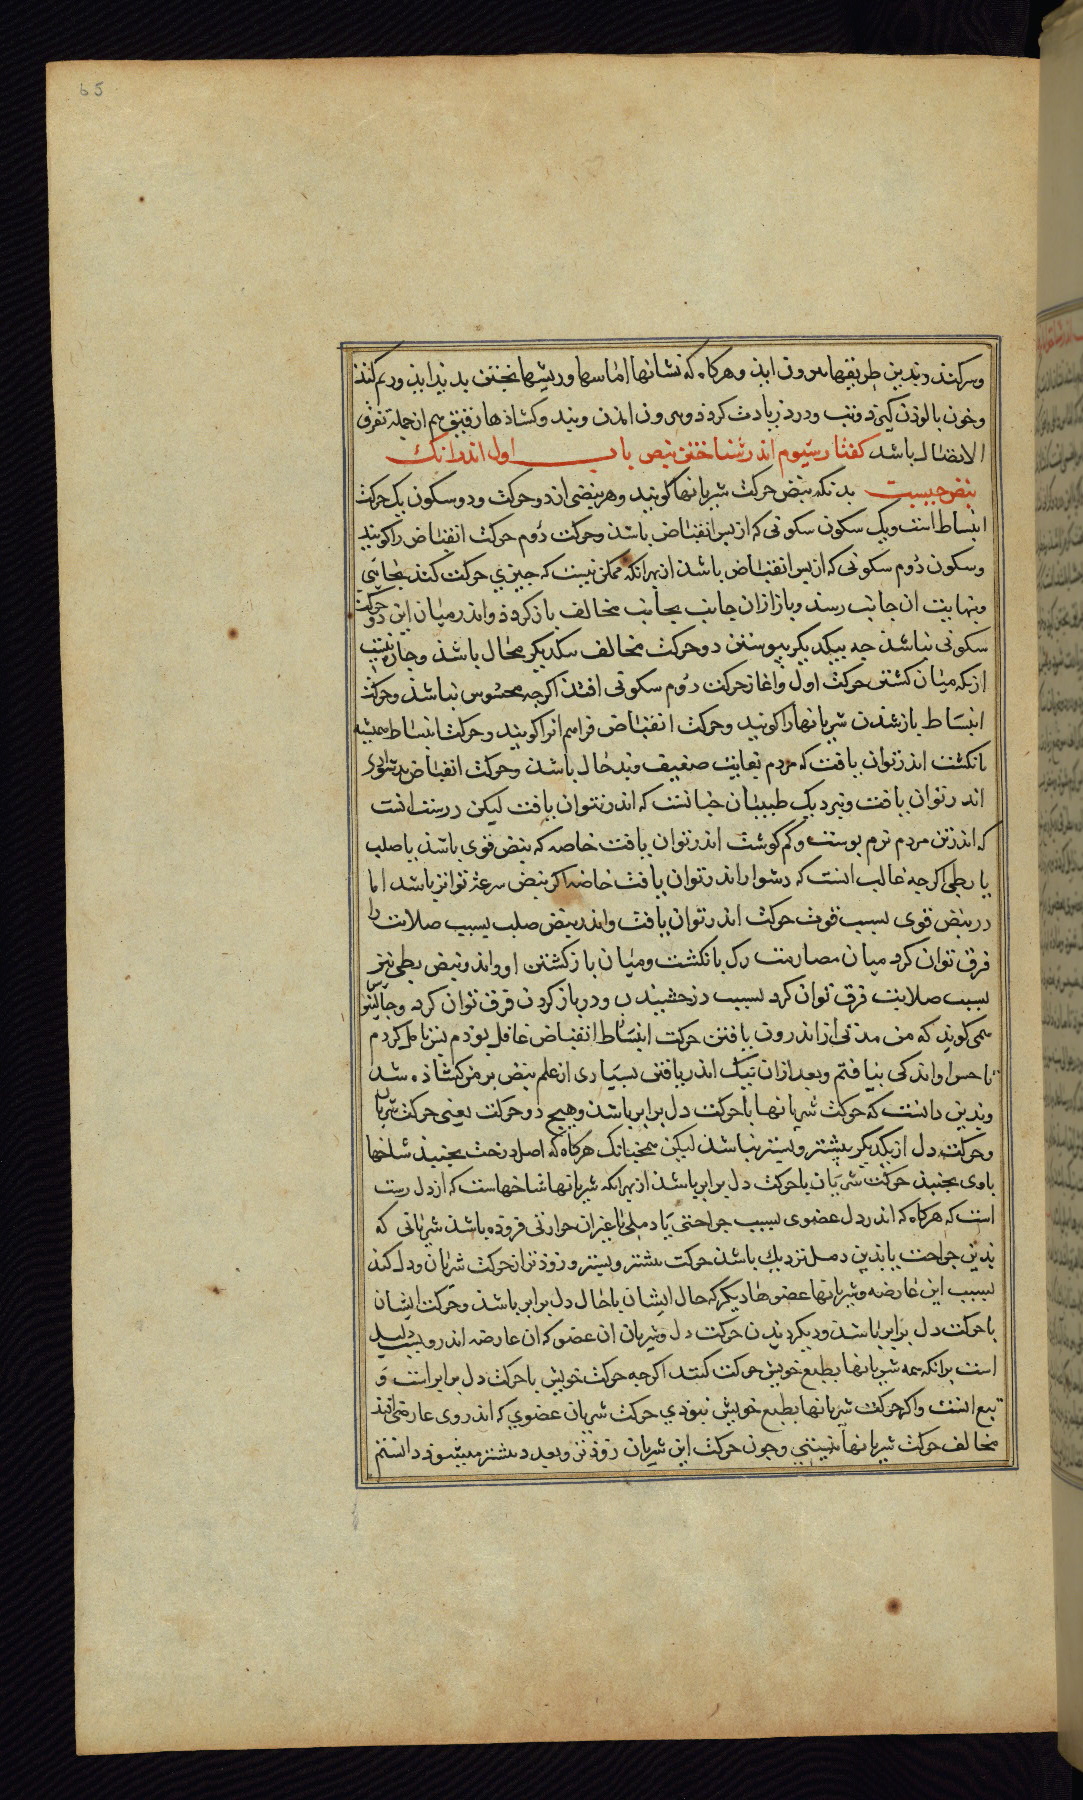 65
وبدین طریقها برون آید و هرکاه که نشانها اماسها وریشها بختن بدید اید وریم کند
وخون بالوذن کیرد وتب ودرد زیادت کردذ وبیرون امدن وبند وکشادها رفیق هم از جمله تفرق
الاتصال باشد کفتار سیوم اندر شناختن نبض باب اول اندر انک
نبض جیست بدانکه نبض حرکت شریانها کویند وهر نبضی از دو حرکت ودو سکون یک حرکت
انبساط است ویک سکون سکونی که از پس انقباض باشد وحرکت دوم حرکت انقباض را کویند
وسکون دوم سکونی که از پس انقباض باشد از بهر انکه ممکن نیست که جیزی حرکت کند بجانبی
وبنهایت ان جانب رسد وباز ازان جانب بجانب مخالف باز کردد واندر میان این دو حرکت
سکونی نباشد جه بیکدیکر بیوستن دو حرکت مخالف یکدیکر محال باشد وجاره نیست
ازنکه میان کشتن حرکت اول واغاز حرکت دوم سکونی افتد اکرجه محسوس نباشد وحرکت
انبساط باز شدن شریانها را کویند وحرکت انقباض فراهم انرا کویند وحرکت انبساط همیشه
بانکشت اندر توان یافت که مردم بغایت ضعیف وبد حال باشد وحرکت انقباض بدشواری
اندر توان یافت ونزدیک طبیبان جنانست که اندر نتوان یافت لیکن درست انست
که اندر تن مردم نرم بوست وکم کوشت اندر توان یافت خاصه که نبض قوی باشد یا صلب
یا بطی اکرجه غالب انست که دشوار اندر توان یافت خاصه اکر نبض سرعة تواتر باشد اما
در نبض قوی بسبب قوت حرکت اندر توان یافت واندر نبض صلب بسبب صلابت را
فرق توان کرد میان مصادمت رک بانکشت ومیان باز کشتن او واندر نبض بطی نیز
بسبب صلابت فرق توان کرد بسبب درخشیدن ودیر باز کردن فرق توان کرد وجالینوس
همی کوید که من مدتی از اندرون یافتن حرکت انبساط انقباض غافل بوذم نیز تامل کردم
تا حس او اندکی بیافتم وبعد ازان نیک اندر یافتم بسیاری از علم نبض بر من کشاذه شد
وبدین دانست که حرکت شریانها با حرکت دل برابر باشد وهیج دو حرکت یعنی حرکت شریان
وحرکت دل از یکدیکر بیشتر وبیستر نباشد لیکن همجنانک هرکاه که اصل درخت بجنبد شاخها
باوی بجنبذ حرکت شریان با حرکت دل برابر باشد از بهر انکه شریانها شاخهاست که از دل رست
است که هرکاه که اندر دل عضوی بسبب جراحتی یا دملی یا غیران حرارتی فزوده باشد شریانی که
بدین جراحت یا بدین دمل نزدیک باشد حرکت بیشتر وبیستر وزوذتر از حرکت شریان ودل کند
بسبب این عارضه وشریانها عضوها دیکر که حال ایشان با حال دل برابر باشد وحرکت ایشان
با حرکت دل برابر باشد ودیکر دیدن حرکت دل وشریان ان عضو که ان عارضه اندر وست دلیل
است برانکه همه شریانها بطبع خویش حرکت کنند اکرجه حرکت خویش با حرکت دل برابر است و
تبع انست واکر حرکت شریانها بطبع خویش نبودی حرکت شریان عضوی که اندر وی عارضی افتد
مخالف حرکت شریانها نیستی وجون حرکت این شریان زوذتر وبعدد بیشتر میشود دانستم